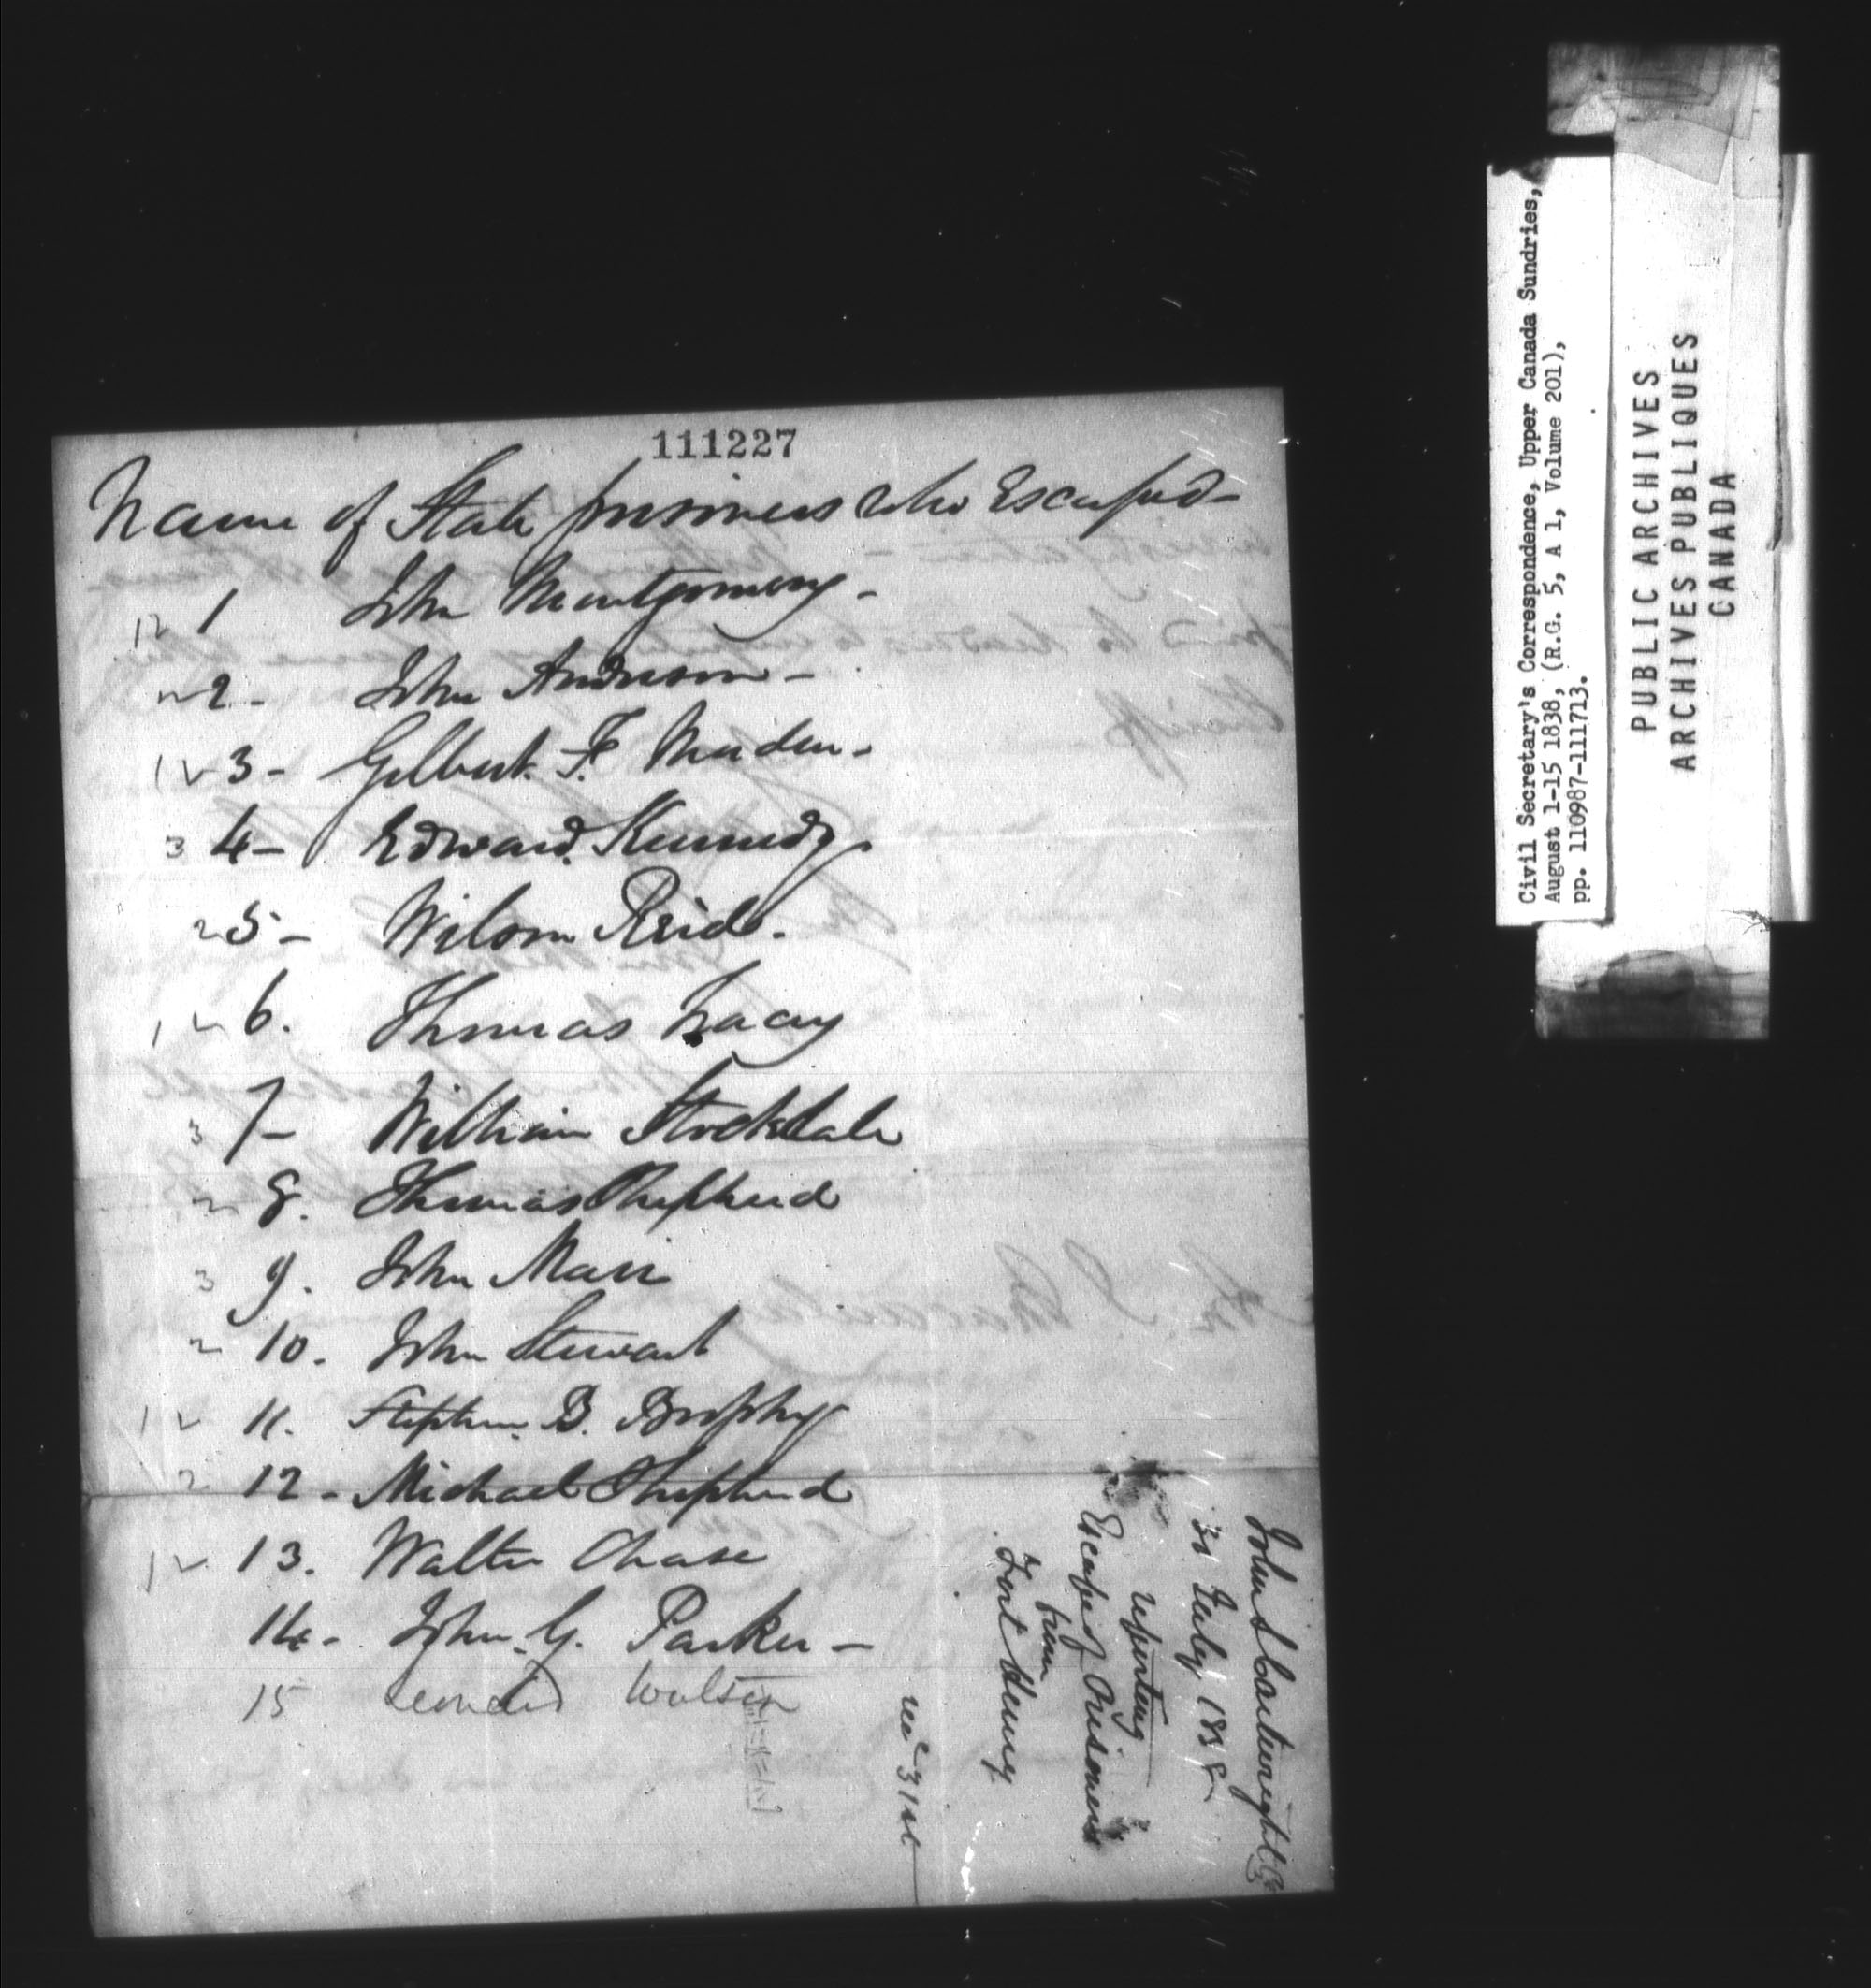 111227
Name of State prisoners who Escaped-
1 John Montgomery-
2- John Anderson-
3- Gilbert F. Morden-
4- Edward Kennedy
5- Wilson Reid.
6. Thomas Tracy
7- William Stockdale
8. Thomas Shepherd
9. John Marr
10. John Stewart
11. Stephen B. Brophy
12- Michael Shepherd
13. Walter Chase
14-. John G. Parker-
15 Leonard Watson
John S Cartwright
31 July 1838
reporting
Escape of Prisoners
from
Fort Henry
recd 31st
Civil Secretary's Correspondence, Upper Canada Sundries,
August 1-15 1838, (R.G. 5, A 1, Volume 201),
pp. 110987-111713.
PUBLIC ARCHIVES
ARCHIVES PUBLIQUES
CANADA